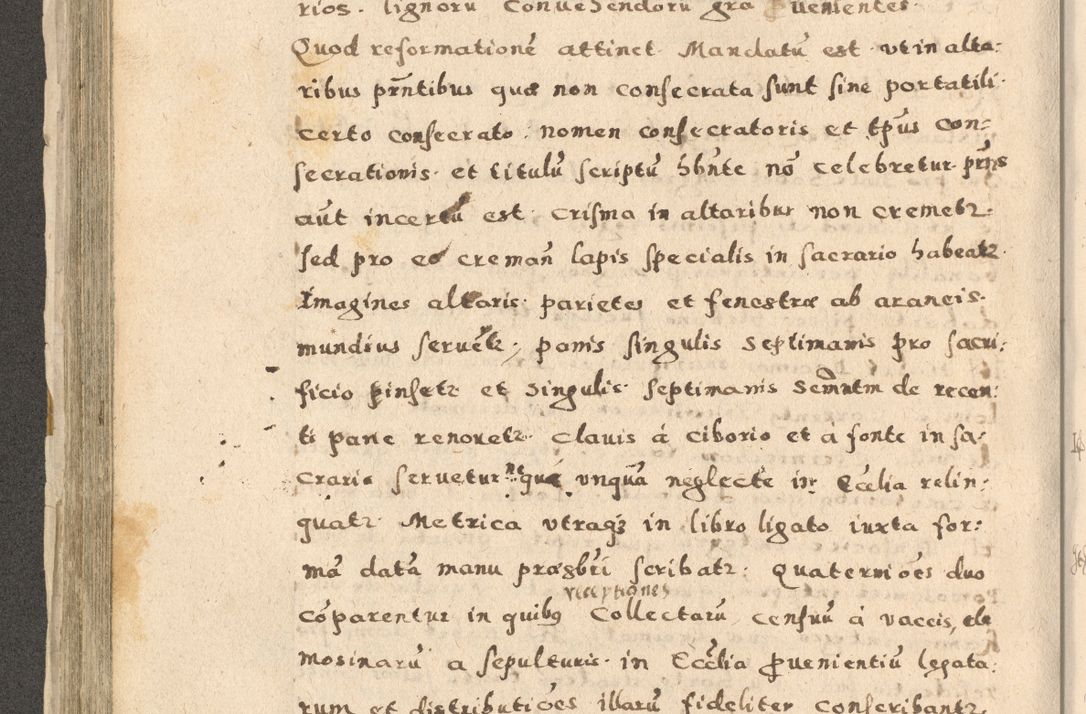 rios. lignorū Convehendorū grā ꝓuenientes.
Quod reformationē attinet. Mandatū est. vt in alta:
ribus pr̄ntibus quæ non consecrata sunt sine portatili.
certo consecrato. nomen consecratoris et tp̄us con:
secrationis. et titulū scriptū hb̄nte nō celebretur. pr̄ns
aūt incertū est. Crisma in altaribus non cremetr.
sed pro eo creman̄ lapis specialis in sacrario habeatr.
Imagines altaris. parietes et fenestræ ab araneis.
mundius seruētr; panis singulis septimanis pro sacri:
ficio pinsetr et singulis. septimanis Sem̄ntm de recen:
ti pane renouetr. Clauis á ciborio et á fonte in sa:
crario seruetur. ne quæ vnquā neglecte in Eccĺia relin:
quatr. Metrica vtraqꝫ in libro ligato iuxta for:
mā datā manu præsbr̄i scribatr: Quaterniōes duo
cōparentur in quibꝯ Collectarū, censuū á vaccis, ele
receptiones
mosinarū a sepulturis. in Eccĺia ꝓuenientiū legata:
rum et distributiōes illarū fideliter conscribantr.